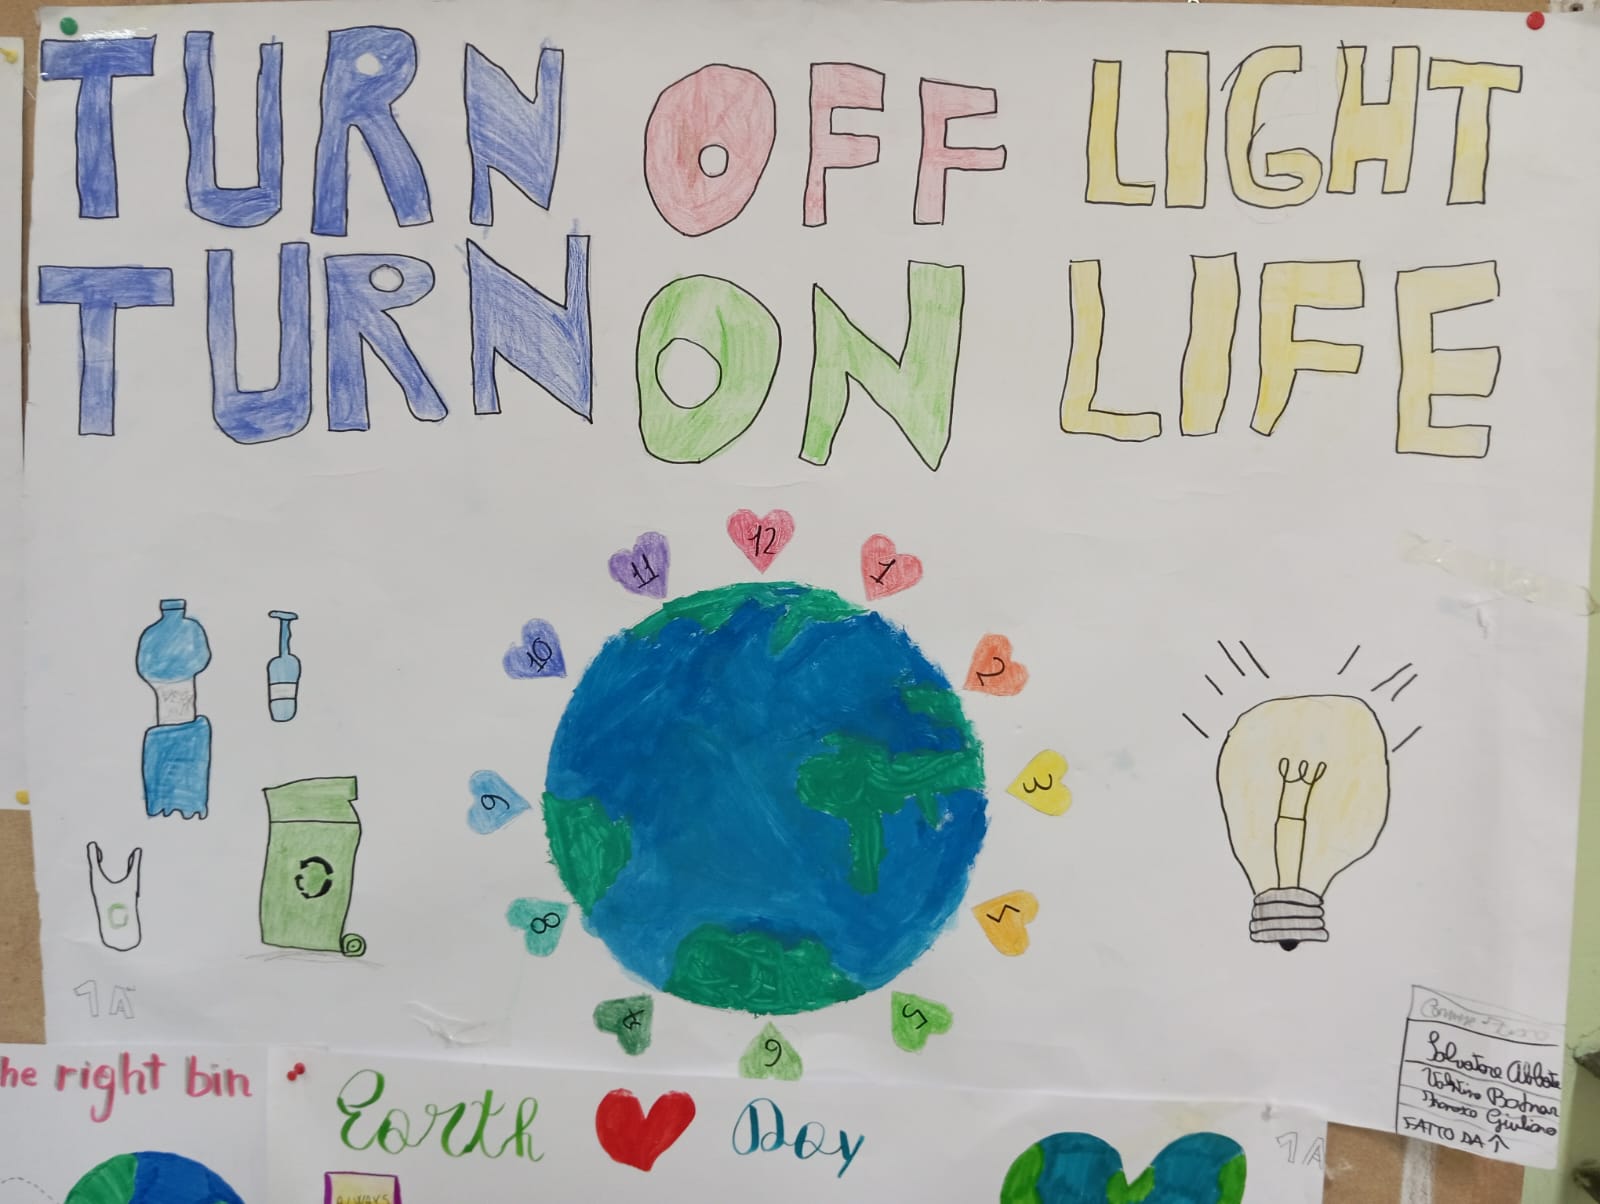 TURN OFF LIGHT
TURN ON LIFE
12
11
1
10
2
9
3
8
4
7
5
6
1A
Salvatore Abbate
Giuliano
FATTO DA
he right bin
Earth Day
1A
ALWAYS